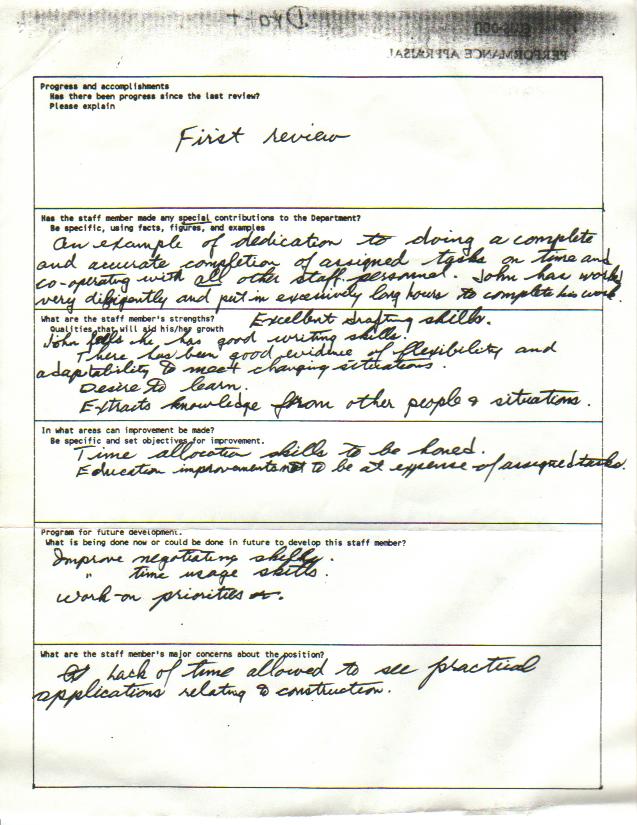 Draft
PERFORMANCE APPRAISAL
Progress and accomplishments
Has there been progress since the last review?
Please explain
First review
Has the staff member made any special contributions to the Department?
Be specific, using facts, figures, and examples
An example of dedication to doing a complete
and accurate completion of assigned tasks on time and
co-operating with all other staff personnel. John has worked
very diligently and put in excessively long hours to complete his work.
What are the staff member's strengths? Excellent drafting skills.
Qualities that will aid his/her growth
John fells he has good writing skills.
There has been good evidence of flexibility and
adaptability to meet changing situations.
Desire to learn.
Extracts knowledge from other people & situations.
In what areas can improvement be made?
Be specific and set objectives for improvement.
Time allocation skills to be honed.
Education improvements not to be at expense of assigned tasks.
Program for future development.
What is being done now or could be done in future to develop this staff member?
Improve negotiating skills.
" time usage skills.
Work on priorities
What are the staff member's major concerns about the position?
Lack of time allowed to see practical
applications relating to construction.